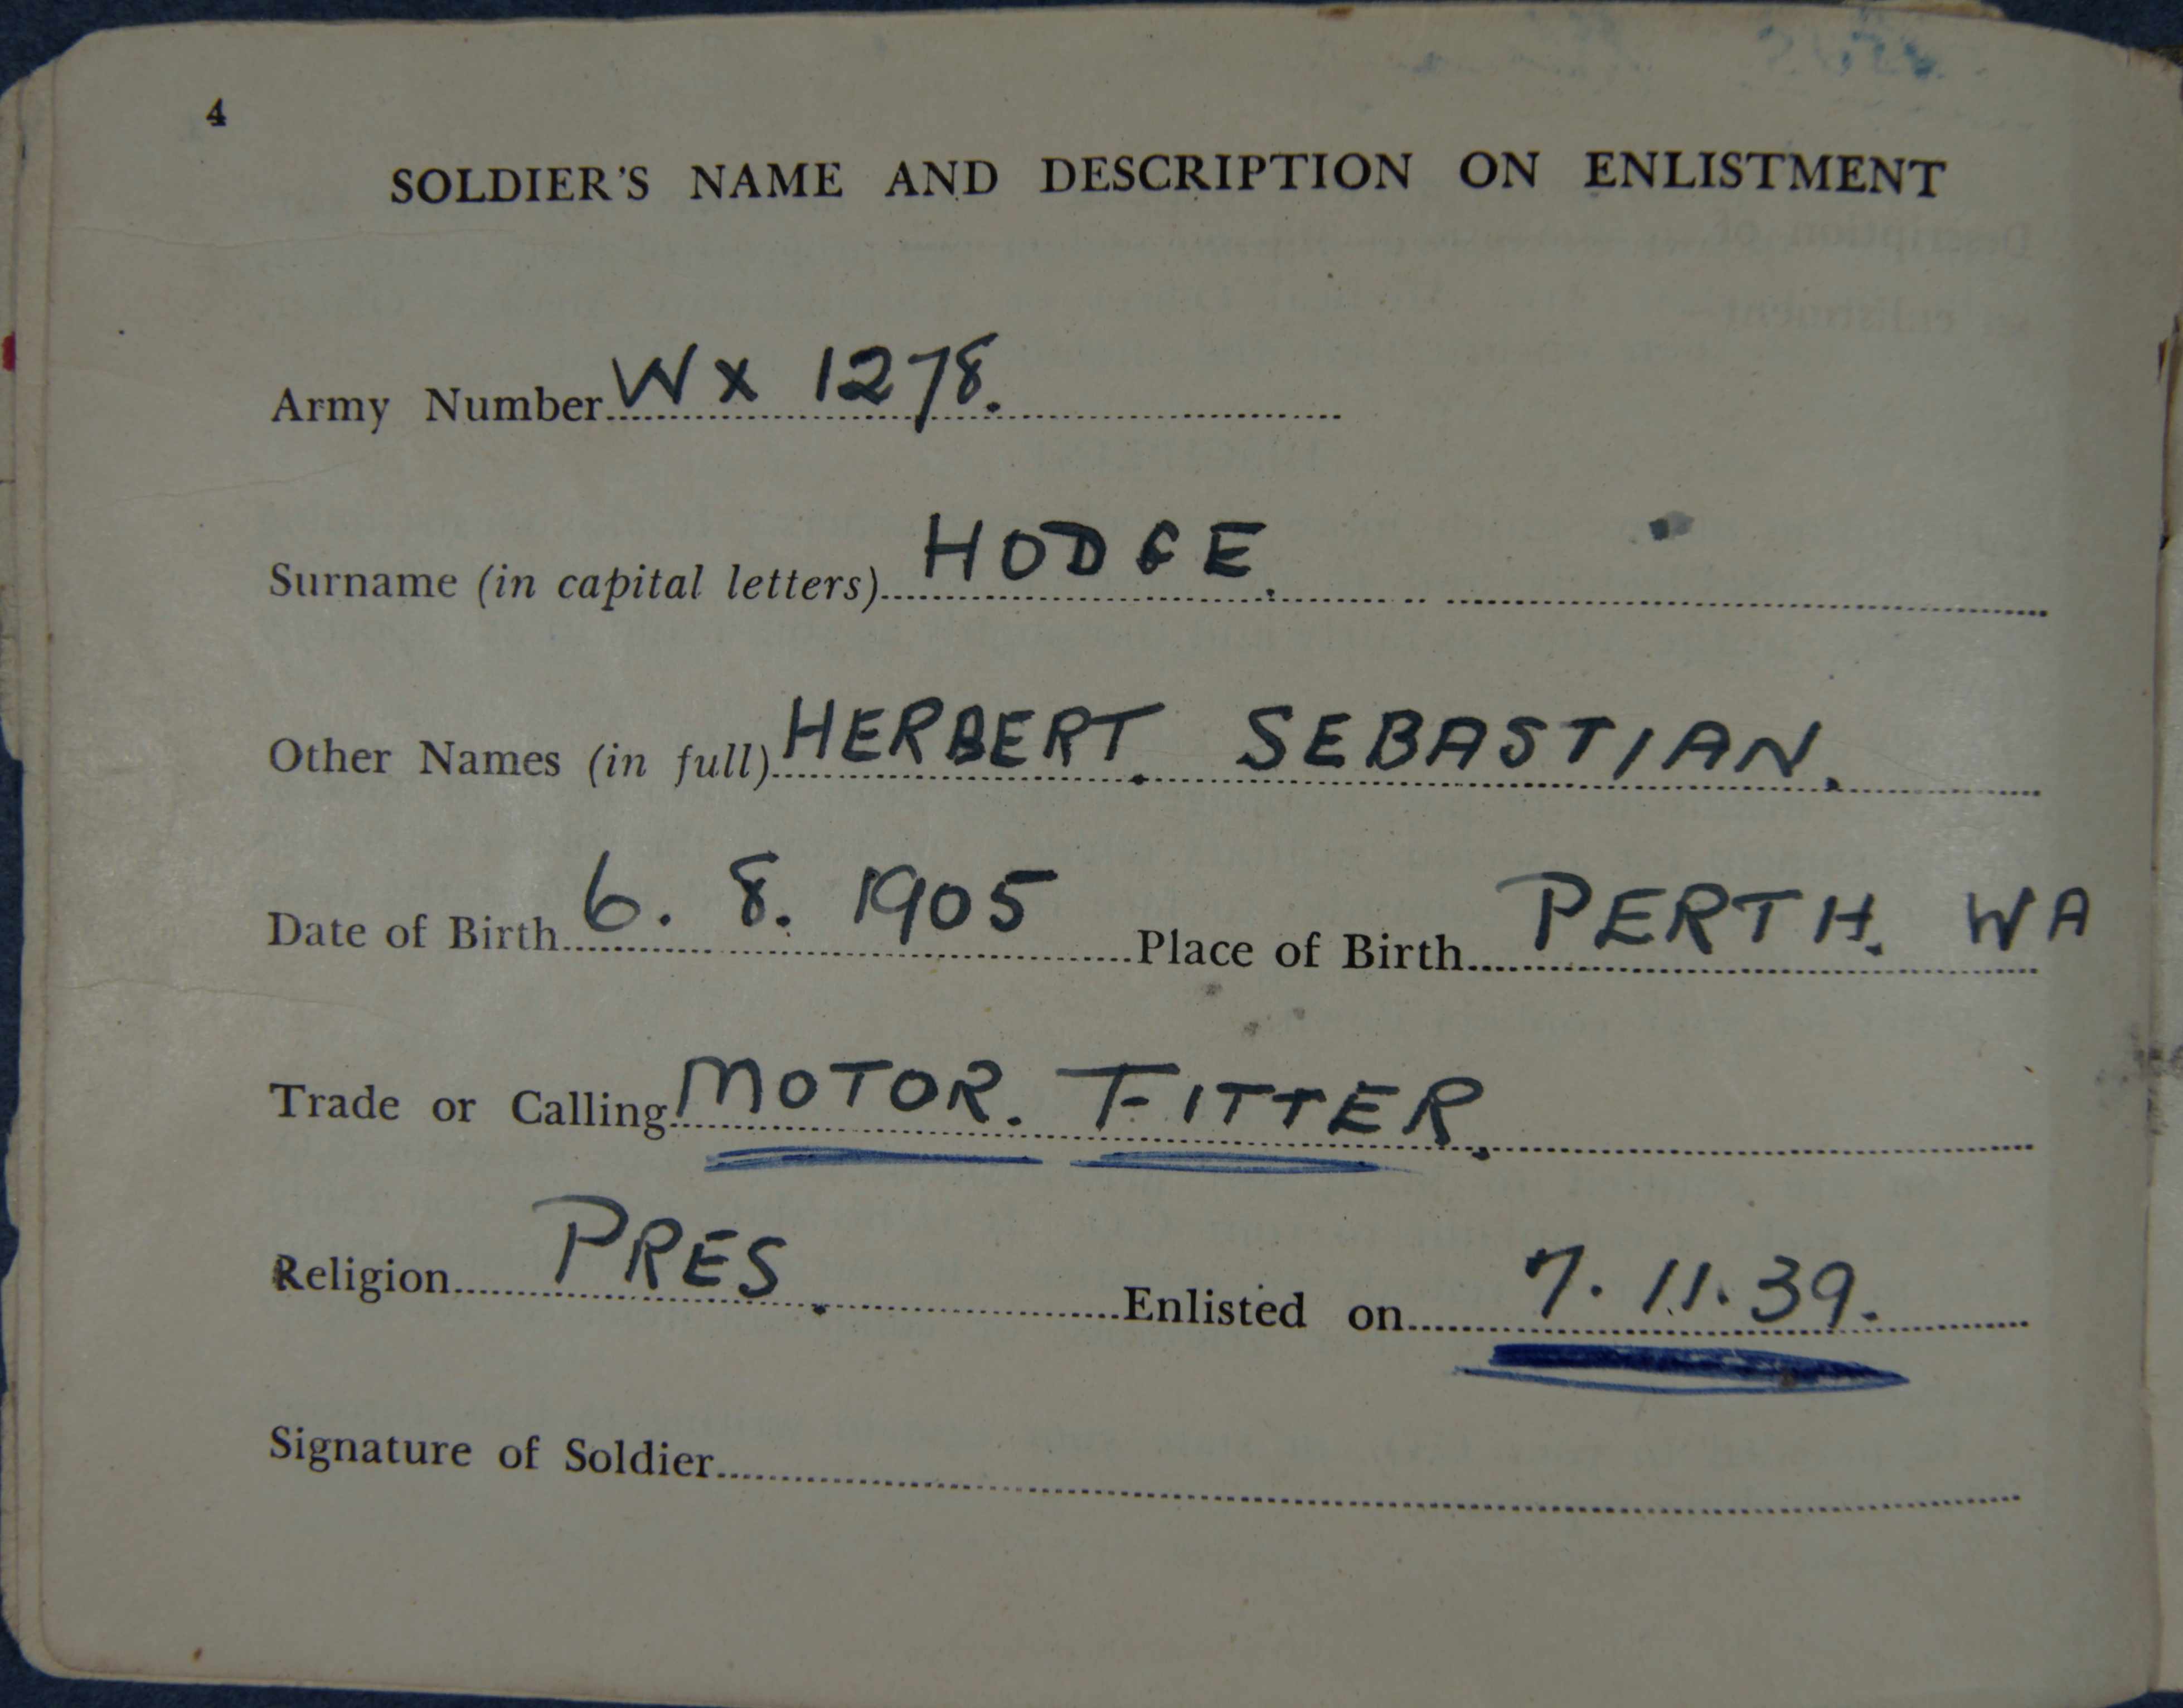 4
SOLDIER'S NAME AND DESCRIPTION ON ENLISTMENT
Army Number WX 1278.
Surname (in capital letters) HODGE.
Other Names (in full) HERBERT. SEBASTIAN.
Date of Birth 6. 8. 1905 Place of Birth PERTH. WA
Trade or Calling MOTOR. FITTER.
Religion PRES. Enlisted on 7.11.39.
Signature of Soldier